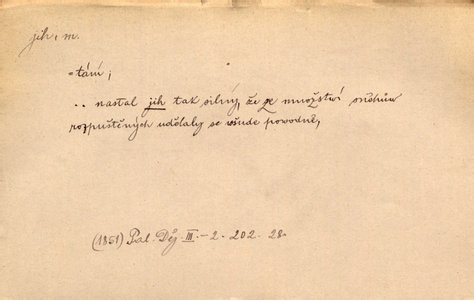 jih, m.
= tání;
.. nastal jih tak silný, že ze množství sněhův
rozpuštěných udělaly se všude povodně,
(1851) Pal. Děj. III. - 2. 202. 28.